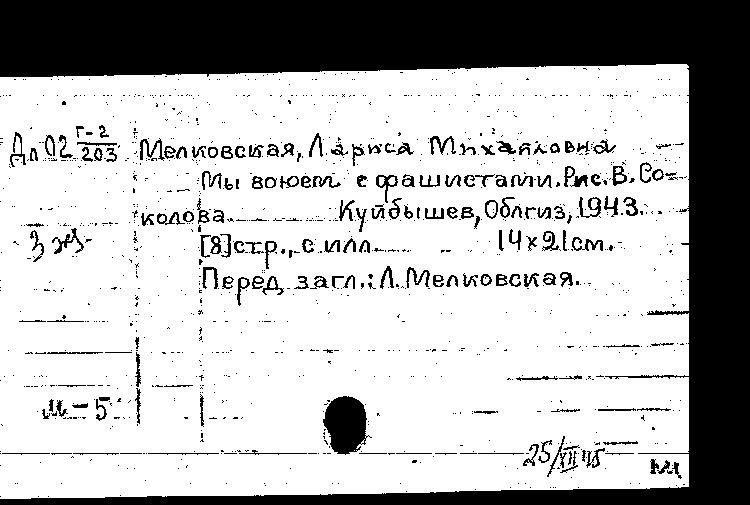 Дл 02 Г-2/203 Мелковская, Лариса Михайловна
Мы воюем с фашистами. Рис. В. Со-
колова. Куйбышев, Облгиз, 1943.
3 экз. [8]стр., с илл. 14х21см.
Перед загл.: Л. Мелковская.
М-5
25/XII 45